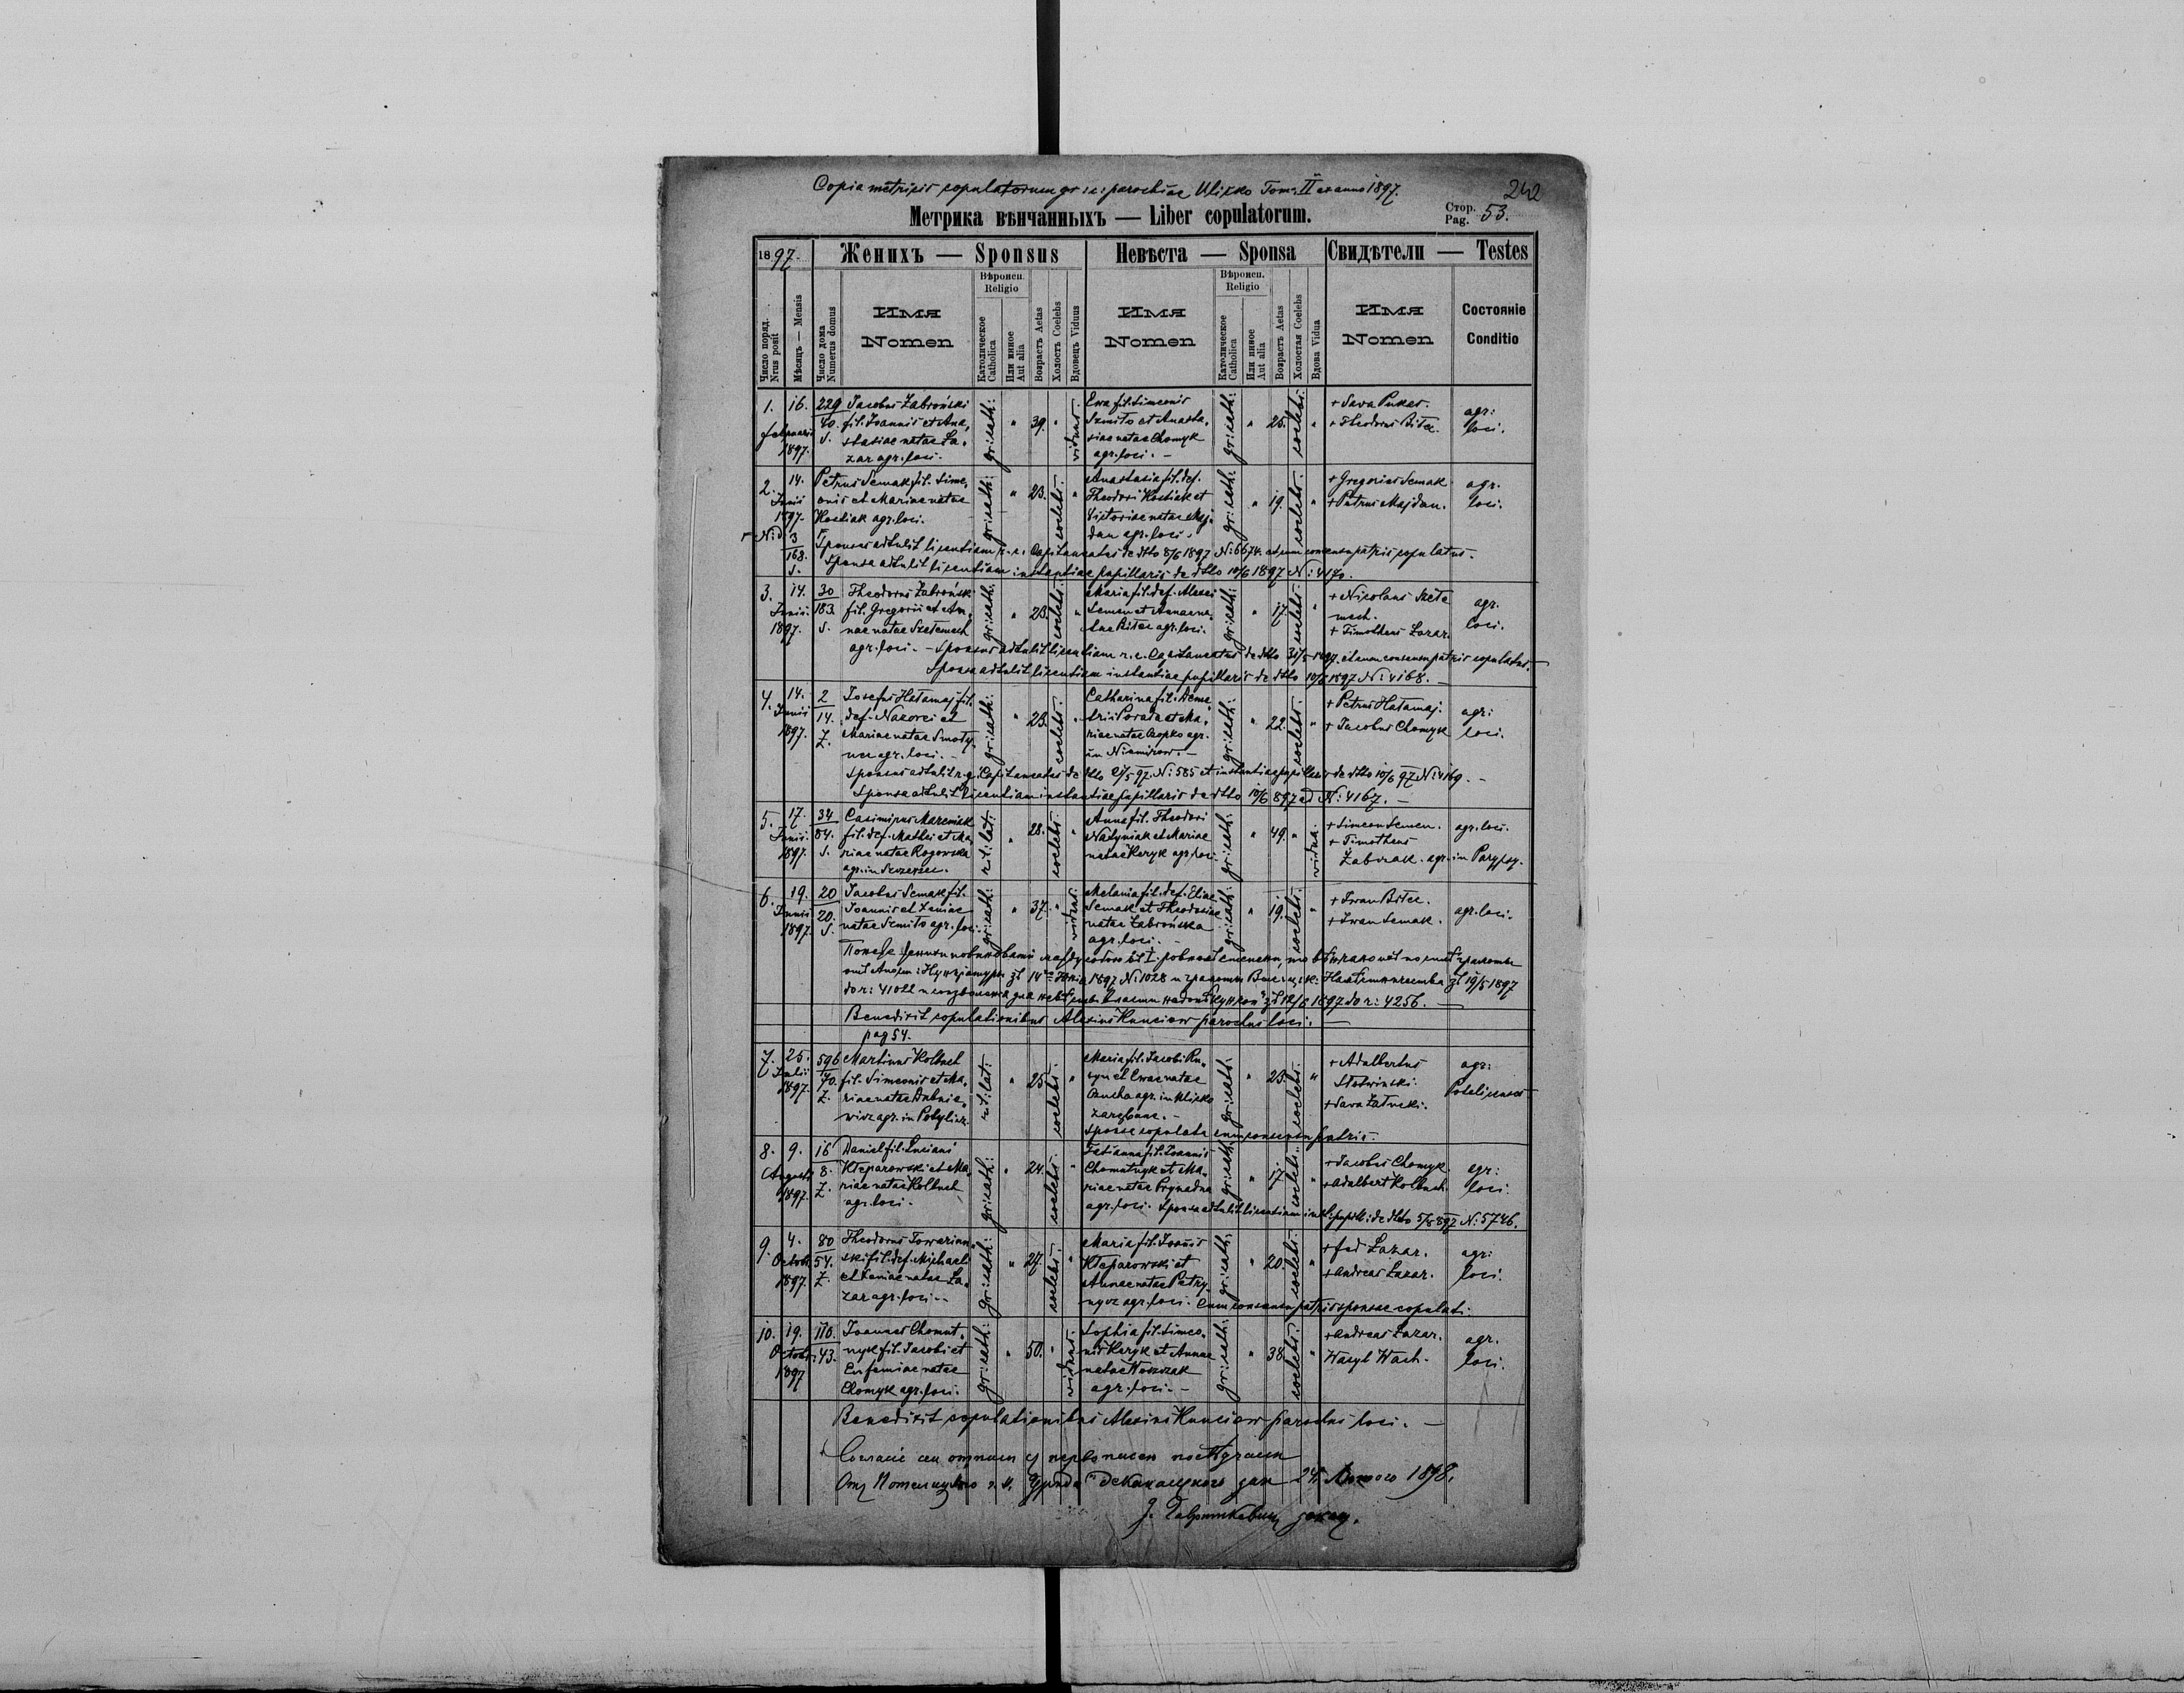 Copia metricis copulatorum gr: c: parochiae Uličko Tom: II ex anno 1897.
242
Метрика вѣнчанныхъ — Liber copulatorum.
Стор.
Pag. 53.
1897.
Женихъ — Sponsus
Невѣста — Sponsa
Свидѣтели — Testes
Число поряд.
Nrus posit
Мѣсяцъ — Mensis
Число дома
Numerus domus
Имя
Nomen
Вѣроисп.
Religio
Католическое
Catholica
Или иное
Aut alia
Возрастъ Aetas
Холостъ Coelebs
Вдовецъ Viduus
Имя
Nomen
Вѣроисп.
Religio
Католическое
Catholica
Или иное
Aut alia
Возрастъ Aetas
Холостая Coelebs
Вдова Vidua
Имя
Nomen
Состояніе
Conditio
1. 16.
Februarii
1897.
229
40.
S.
Jacobus Zabroński
fil. Joannis et Ana-
stasiae natae La-
zar agr. loci.
gr: cath:
" 39. "
viduus.
Eva fil. Simeonis
Szmiło et Anasta-
siae natae Chomyk
agr. loci. —
gr: cath:
" 25.
coelebs.
"
+ Sava Pukas.
+ Theodorus Bitec.
agr:
loci.
2. 14.
Junii
1897.
N: d 3
168.
S.
Petrus Semak fil. Sime-
onis et Mariae natae
Kostiak agr. loci.
gr: cath:
" 23.
coelebs.
"
Anastasia fil. def.
Theodori Kostiak et
Victoriae natae Maj-
dan agr. loci.
gr: cath:
" 19.
coelebs.
"
+ Gregorius Semak
+ Petrus Majdan.
agr.
loci.
Sponsus adtulit licentiam r. c. Capitaneatus de dtto 8/6 1897 N: 6674. et cum consensu patris copulatus.
Sponsa adtulit licentiam instantiae pupillaris de dtto 10/6 1897 N: 4170.
3. 14.
Junii
1897.
30
183.
S.
Theodorus Zabroński
fil. Gregorii et An-
nae natae Szetemech
agr. loci. —
gr: cath:
" 23.
coelebs.
"
Maria fil. def. Alexei
Semen et Annae na-
tae Bitec agr. loci.
gr: cath:
" 17.
coelebs.
"
+ Nicolaus Szete
mech.
+ Timotheus Lazar.
agr.
loci.
Sponsus adtulit licentiam r. c. Capitaneatus de dtto 31/5 1897. et cum consensu patris copulatus. —
Sponsa adtulit licentiam instantiae pupillaris de dtto 10/6 1897 N: 4168. —
4. 14.
Junii
1897.
2
14.
Z.
Josefus Hałamaj fil.
def. Nazorei et
Mariae natae
agr. loci. —
gr: cath:
" 23.
coelebs.
"
Catharina fil. Deme-
trii Porada et Ma-
riae natae Czopko agr.
in Niemirow. —
gr: cath:
" 22.
coelebs.
"
+ Petrus Hałamaj.
+ Jacobus Chomyk
agr:
loci.
Sponsus adtulit r. c. Capitaneatus de dtto 97. N: 585 et instantiae pupillaris de dtto 10/6 97 N: 4169. —
Sponsa adtulit licentiam instantiae pupillaris de dtto 10/6 897 ad N: 4167. —
5. 17.
Junii
1897.
34
84.
S.
Casimirus Marcniak
fil. def. Mathei et Ma-
riae natae Rogowska
agr. in Szczerzec.
rit: lat:
" 28.
coelebs.
"
Anna fil. Theodori
Natyniak et Mariae
natae Keryk agr. loci.
gr: cath:
" 49. "
vidua.
+ Simeon Semen.
+ Timotheus
Zabrzak. agr. in Parypsy.
agr. loci.
6. 19.
Junii
1897.
20
20.
S.
Jacobus Semak fil.
Joannis et Xeniae
natae Szmiło agr. loci.
gr: cath:
" 37. "
viduus.
Melania fil. def. Eliae
Semak et Theodosiae
natae Zabrońska
agr. loci. —
gr: cath:
" 19.
coelebs.
"
+ Iwan Bitec.
+ Iwan Semak.
agr. loci.
1897 N: 1028
1897 do r: 4256. —
Benedixit copulationibus Alexius Kunciow parochus loci. —
pag 54.
7. 25.
Julii
1897.
596
70.
Z.
Martinus Kolbuch
fil. Simeonis et Ma-
riae natae Antnie-
wicz agr. in Potylicz.
rit: lat:
" 25.
coelebs.
"
Maria fil. Jacobi Ru-
syn et Evae natae
agr. in Uličko
zarębane. —
Sponsae copulata cum consensu patris. —
gr: cath:
" 23.
coelebs.
"
+ Adalbertus
Słotwinski.
+ Sava Załucki.
agr:
Potelicensis
8. 9.
Augusti
1897.
16
8.
Z.
Daniel fil. Luciani
Kleparowski et Ma-
riae natae Kolbuch
agr. loci.
gr: cath:
" 24.
coelebs.
"
Tatianna fil. Joannis
Chomutnyk et Ma-
riae natae Prynadna
agr. loci. Sponsa adtulit licentiam inst: pupill: de dtto 5/8 897 N: 5746.
gr: cath:
" 17.
coelebs.
"
+ Jacobus Chomyk
+ Adalbert Kolbuch.
agr:
loci.
9. 4.
Octobr.
1897.
80
54.
Z.
Theodorus Towarian-
ski fil. def. Michaeli
et Xeniae natae La-
zar agr. loci. —
gr: cath:
" 27.
coelebs.
"
Maria fil. Joannis
Kleparowski et
Annae natae Petry-
nycz agr. loci. Cum consensu patris sponsae copulati.
gr: cath:
" 20.
coelebs.
"
+ Fed Lazar.
+ Andreas Lazar.
agr:
loci.
10. 19.
Octobr.
1897
110.
43.
Joannes Chomut-
nyk fil. Jacobi et
Eufemiae natae
Chomyk agr. loci.
gr: cath:
" 50. "
viduus.
Sophia fil. Simeo-
nis Keryk et Annae
natae Woszczak
agr. loci. —
gr: cath:
" 38.
coelebs.
"
+ Andreas Lazar.
Wasyl Wach.
agr.
loci.
Benedixit copulationibus Alexius Kunciow parochus loci. —
1898.